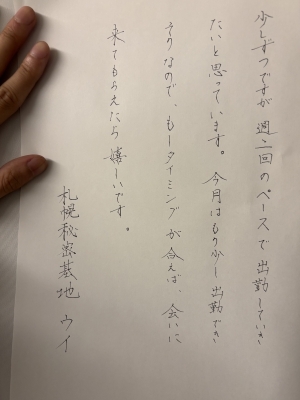 少しずつですが 週二回のペースで 出勤していき
たいと思っています。 今月はもう少し出勤でき
そうなので、もしタイミングが合えば、会いに
来てもらえたら嬉しいです。
札幌秘密基地 ウイ